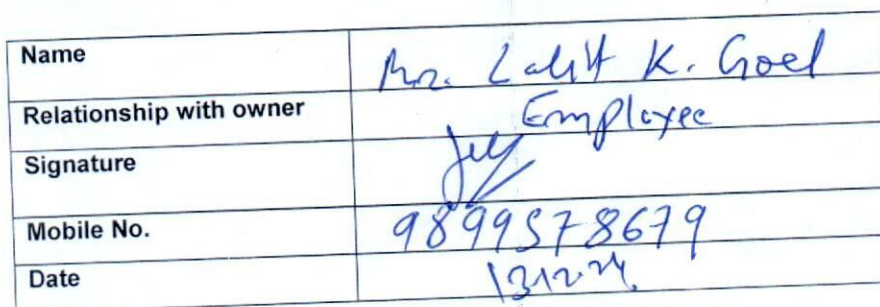 Name Mr. Lalit K. Goel
Relationship with owner Employee
Signature
Mobile No. 9899578679
Date 13.12.24